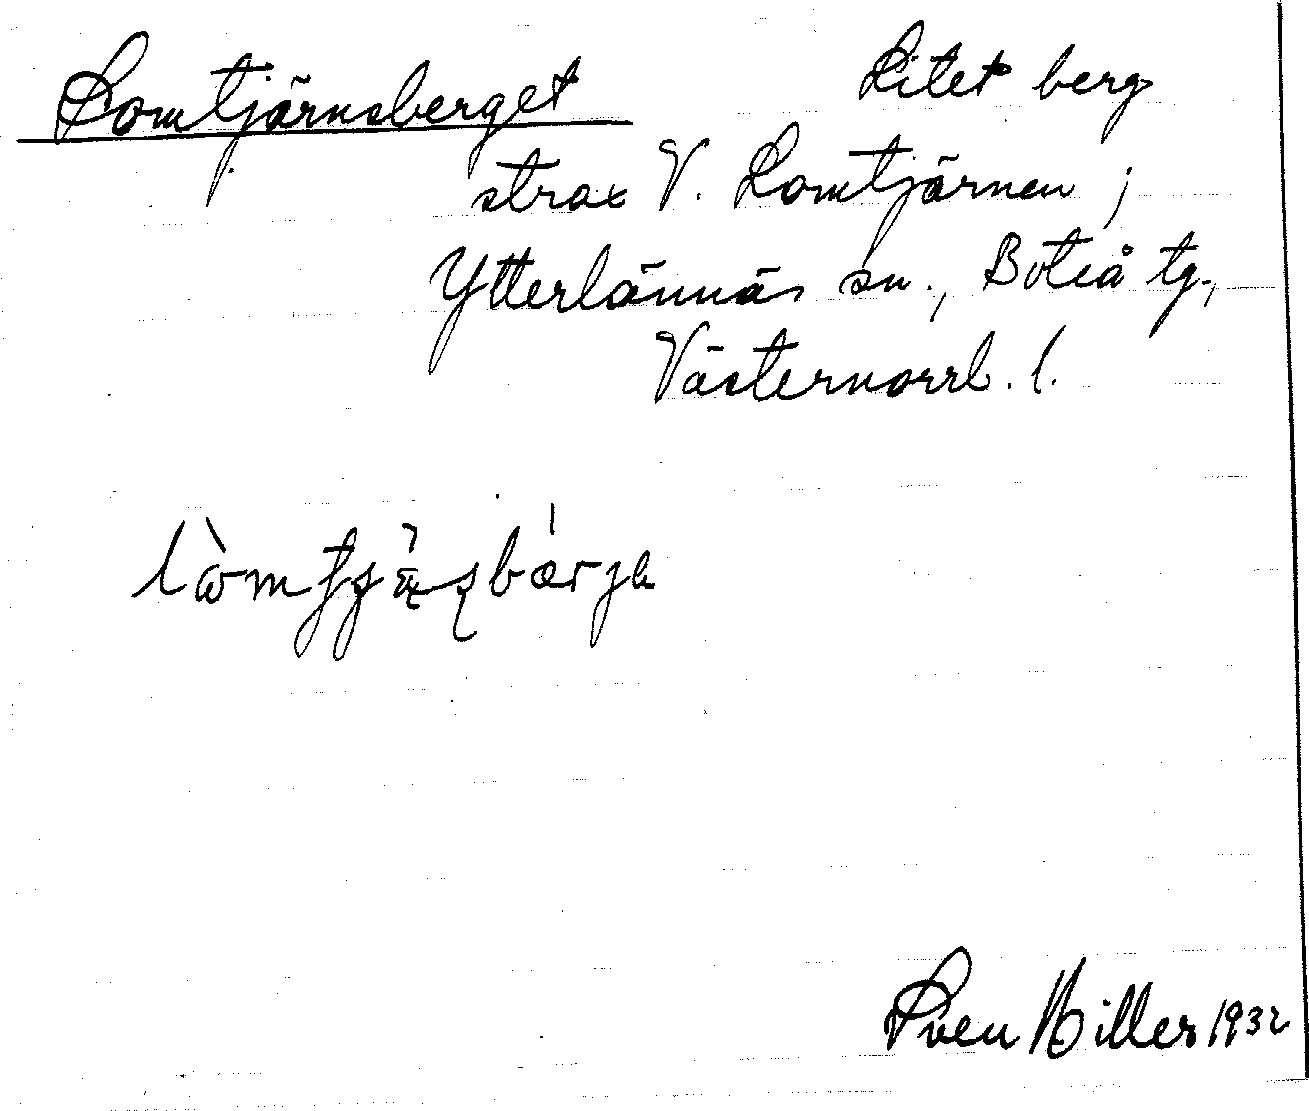 Lomtjärnsberget Litet berg
strax V. Lomtjärnen ;
Ytterlännäs sn., Boteå tg.,
Västernorrl. l.
Sven Hiller 1932